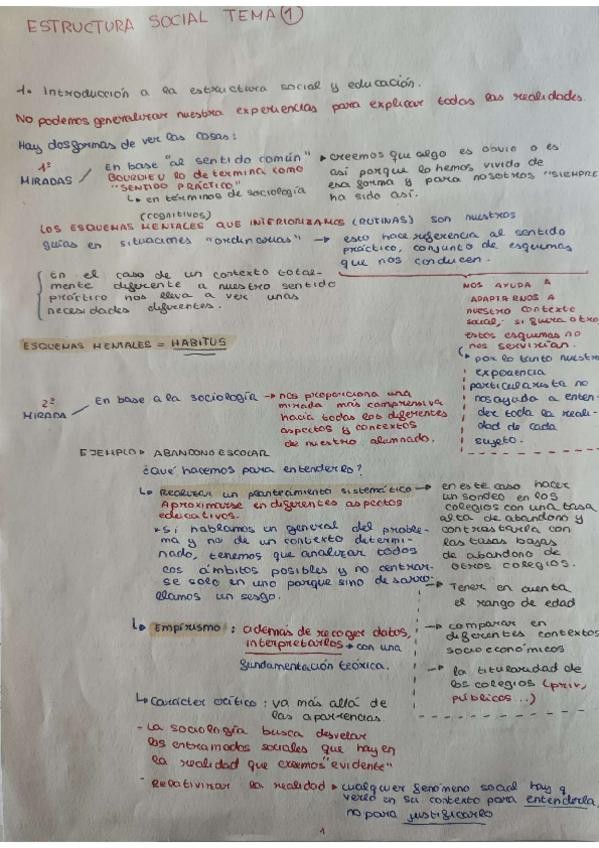 ESTRUCTURA SOCIAL TEMA 1
1. Introducción a la estructura social y educación.
No podemos generalizar nuestra experiencias para explicar todas las realidades.
Hay dos formas de ver las cosas:
1ª MIRADAS
En base "al sentido común"
BOURDIEU lo determina como
"SENTIDO PRÁCTICO"
en términos de sociología
creemos que algo es obvio o es
así porque lo hemos vivido de
esa forma y para nosotros "SIEMPRE
ha sido así.
(cognitivos)
LOS ESQUEMAS MENTALES QUE INTERIORIZAMOS (RUTINAS) son nuestros
guías en situaciones "ordinarias" →
esto hace referencia al sentido
práctico, conjunto de esquemas
que nos conducen.
En el caso de un contexto total-
mente diferente a nuestro sentido
práctico nos lleva a ver unas
necesidades diferentes.
NOS AYUDA A
ADAPTARNOS A
nuestro contexto
social, si fuera otro
estos esquemas no
nos servirían.
por lo tanto nuestra
experiencia
particularista no
nos ayuda a enten-
der toda la reali-
dad de cada
sujeto.
ESQUEMAS MENTALES = HABITUS
2ª MIRADA
En base a la sociología →
nos proporciona una
mirada más comprensiva
hacia todos los diferentes
aspectos y contextos
de nuestro alumnado.
EJEMPLO ABANDONO ESCOLAR
¿qué hacemos para entenderlo?
Realizar un planteamiento sistemático →
Aproximarse en diferentes aspectos
educativos.
* Si hablamos en general del proble-
ma y no de un contexto determi-
nado, tenemos que analizar todos
los ámbitos posibles y no centrar-
se solo en uno porque sino desarro-
llamos un sesgo.
en este caso hacer
un sondeo en los
colegios con una tasa
alta de abandono y
contrastarla con
las tasas bajas
de abandono de
otros colegios.
→ Tener en cuenta
el rango de edad
→ comparar en
diferentes contextos
socioeconómicos
→ la titularidad de
los colegios (priv,
públicos...)
Empirismo: además de recoger datos,
interpretarlos → con una
fundamentación teórica.
Carácter crítico: va más allá de
las apariencias
- La sociología busca desvelar
los entramados sociales que hay en
la realidad que creemos "evidente"
- Relativizar la realidad
cualquier fenómeno social hay q
verlo en su contexto para entenderla,
no para justificarlo
1